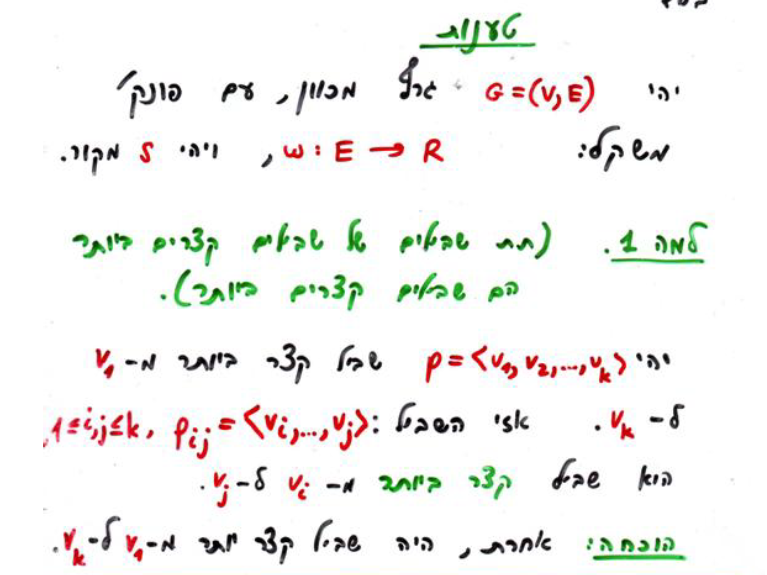 טענות
יהי G=(V,E) גרף מכוון, עם פונק'
משקל: w:E→R, ויהי s מקור.
למה 1. (תת שבילים של שבילים קצרים ביותר
הם שבילים קצרים ביותר).
יהי p=<v₁,v₂,...,vₖ> שביל קצר ביותר מ-v₁
ל-vₖ. אזי השביל: pᵢⱼ=<vᵢ,...,vⱼ>, 1≤i,j≤k,
הוא שביל קצר ביותר מ-vᵢ ל-vⱼ.
הוכחה: אחרת, היה שביל קצר יותר מ-v₁ ל-vₖ.